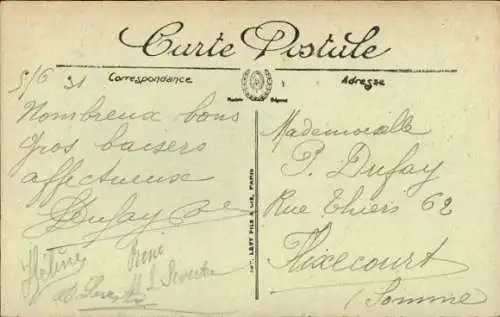 Carte Postale
Correspondance
Adresse
5/6 31
Nombreux bons
gros baisers
affectueux
Dufay
Hélène
René
Mademoiselle
P. Dufay
Rue Thiers 62
Flixecourt
(Somme)
LEVY FILS & CIE, PARIS